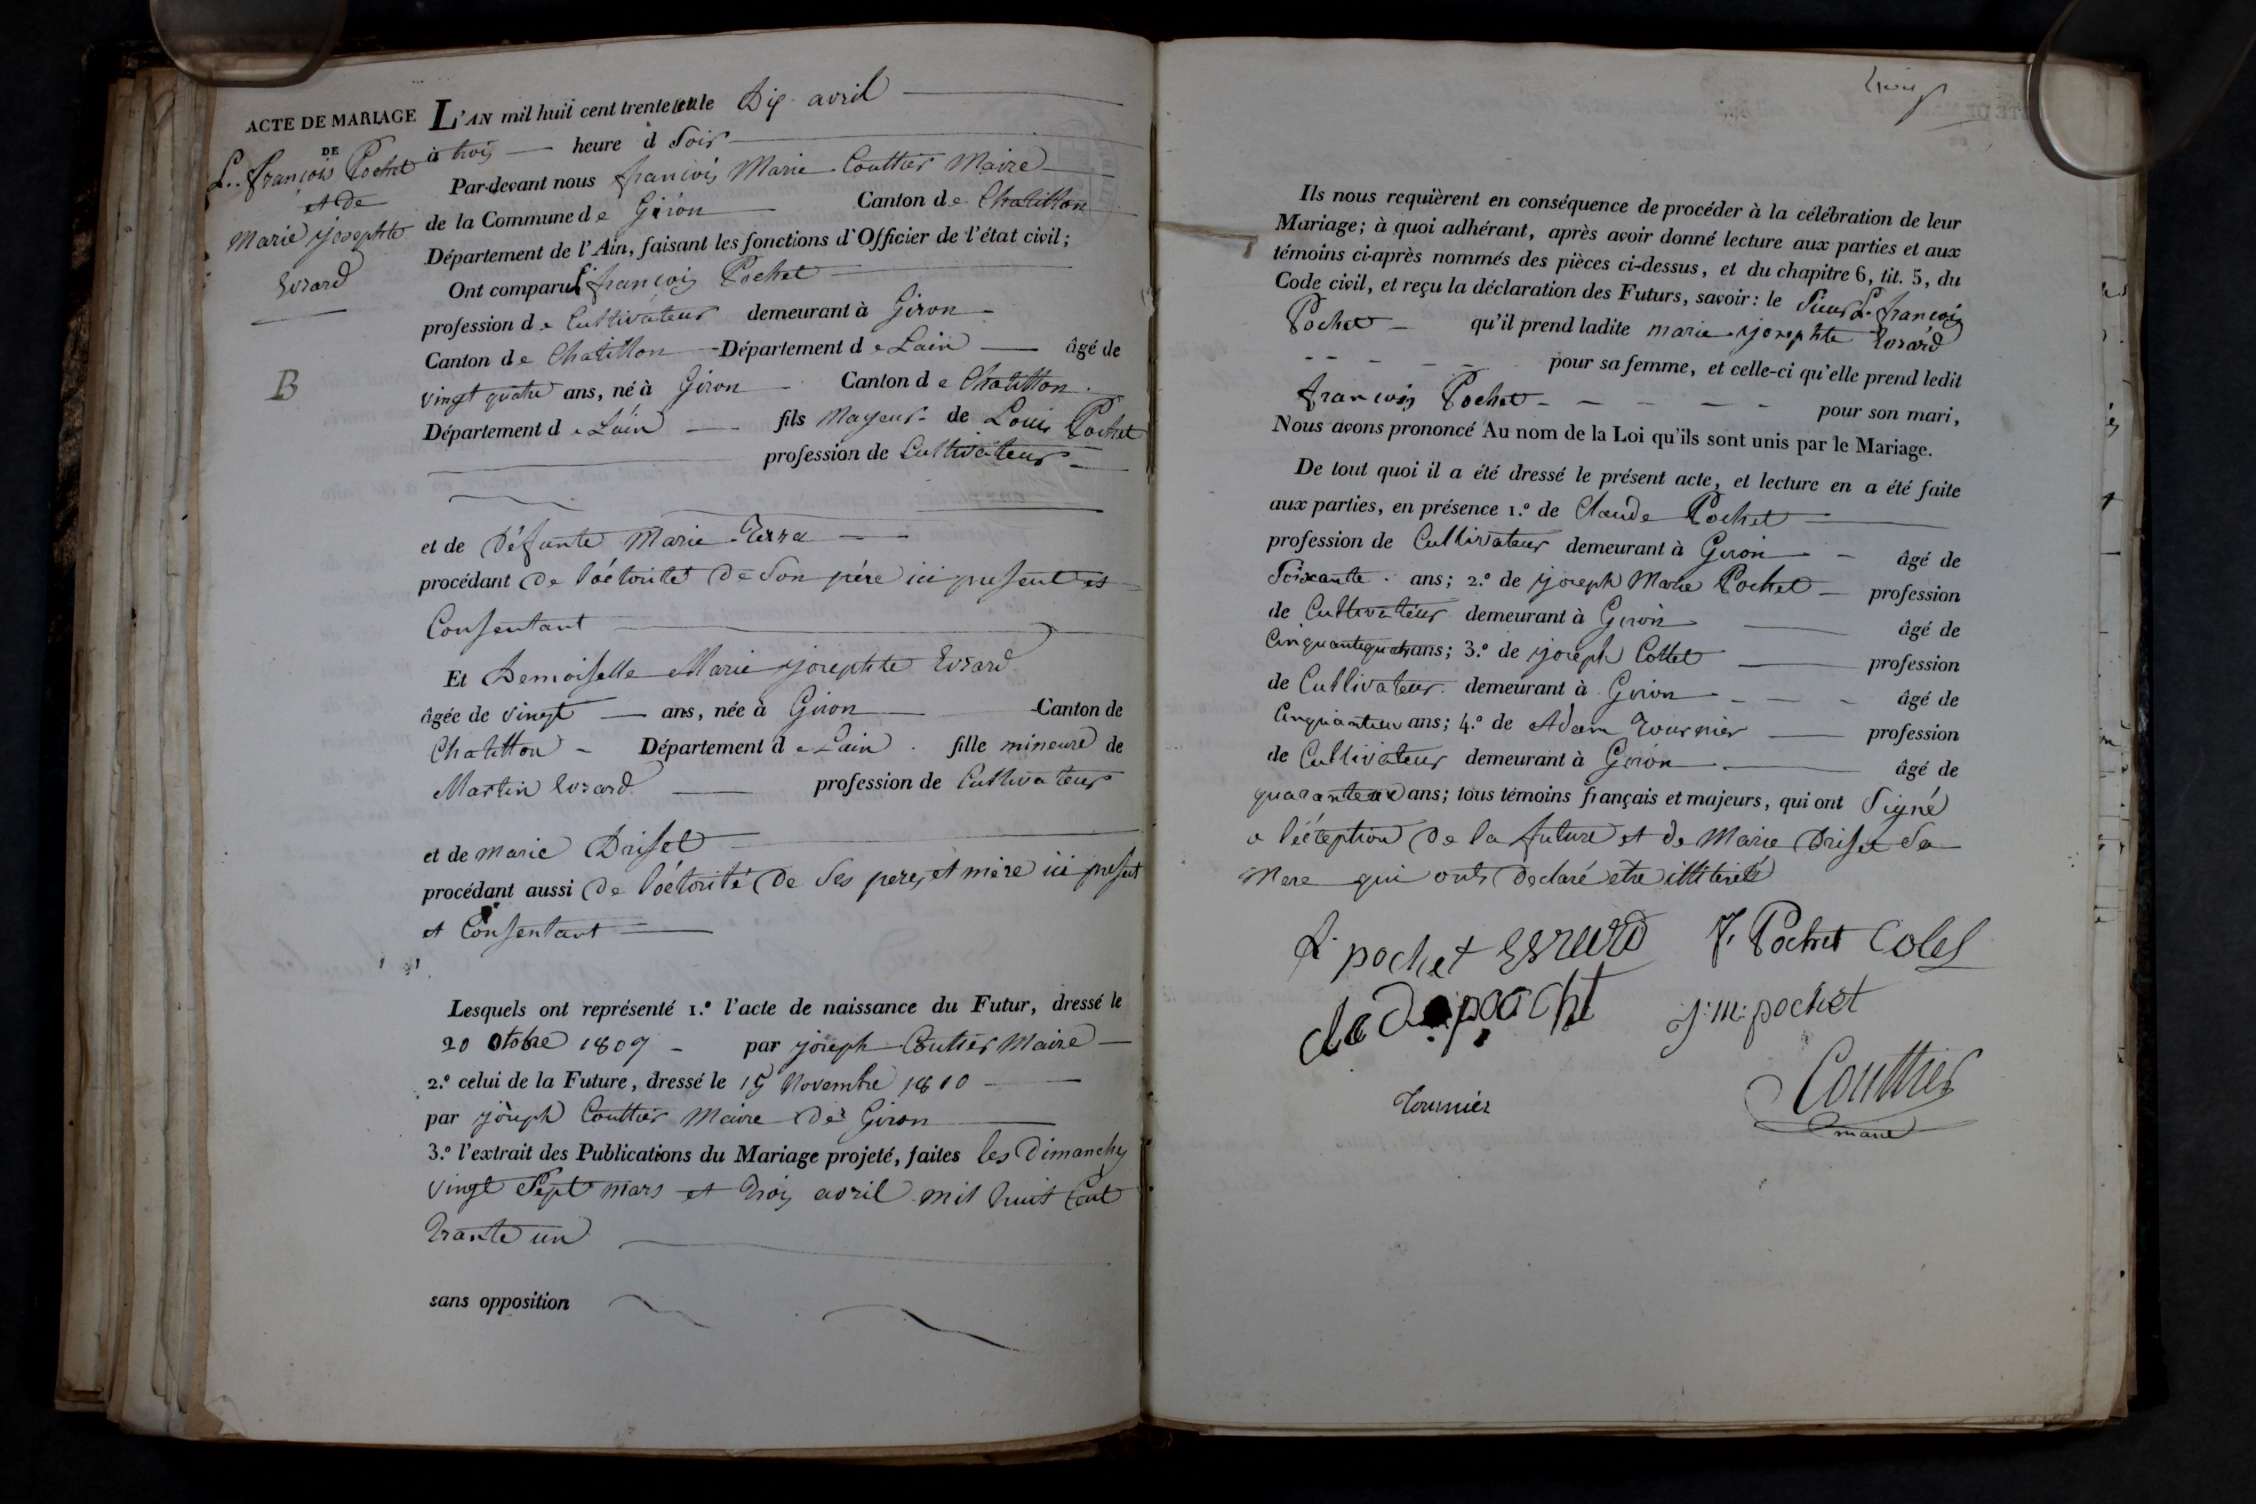 ACTE DE MARIAGE
DE
L. françois Pochet
et de
Marie josephte
Evrard
B
L'AN mil huit cent trente un le Dix avril
à trois heure d Soir
Par-devant nous françois Marie Couttier Maire
de la Commune de Giron Canton de Chatillon
Département de l'Ain, faisant les fonctions d'Officier de l'état civil;
Ont comparu françois Pochet
profession de Cultivateur demeurant à Giron
Canton de Chatillon Département de Lain âgé de
vingt quatre ans, né à Giron Canton de Chatillon
Département de Lain fils Mayeur de Louis Pochet
profession de Cultivateur
et de Défunte Marie
procédant de l'octorité de Son père ici présent et
Consentant
Et Demoiselle Marie josephte Evrard
âgée de vingt ans, née à Giron Canton de
Chatillon Département de Lain fille mineure de
Martin Evrard profession de Cultivateur
et de marie Driset
procédant aussi de l'octorité de Ses peres et mère ici présent
et Consentant
Lesquels ont représenté 1.º l'acte de naissance du Futur, dressé le
20 Otobre 1807 par joseph Couttier Maire
2.º celui de la Future, dressé le 15 Novembre 1810
par joseph Couttier Maire de Giron
3.º l'extrait des Publications du Mariage projeté, faites les Dimanches
vingt Sept mars et trois avril mil huit Cent
trante un
sans opposition
Ils nous requièrent en conséquence de procéder à la célébration de leur
Mariage; à quoi adhérant, après avoir donné lecture aux parties et aux
témoins ci-après nommés des pièces ci-dessus, et du chapitre 6, tit. 5, du
Code civil, et reçu la déclaration des Futurs, savoir: le Sieur L. françois
Pochet qu'il prend ladite marie josephte Evrard
pour sa femme, et celle-ci qu'elle prend ledit
françois Pochet pour son mari,
Nous avons prononcé Au nom de la Loi qu'ils sont unis par le Mariage.
De tout quoi il a été dressé le présent acte, et lecture en a été faite
aux parties, en présence 1.º de Claude Pochet
profession de Cultivateur demeurant à Giron âgé de
Soixante ans; 2.º de joseph Marie Pochet profession
de Cultivateur demeurant à Giron âgé de
Cinquantequatre ans; 3.º de joseph Collet profession
de Cultivateur demeurant à Giron âgé de
ans; 4.º de Adam Tournier profession
de Cultivateur demeurant à Giron âgé de
ans; tous témoins français et majeurs, qui ont Signé
a l'éception de la future et de Marie Driset Sa
Mere qui ont declaré etre illiteré
L. pochet Evrard F. Pochet Colet
pochet j. m. pochet
Tournier Couttier
maire